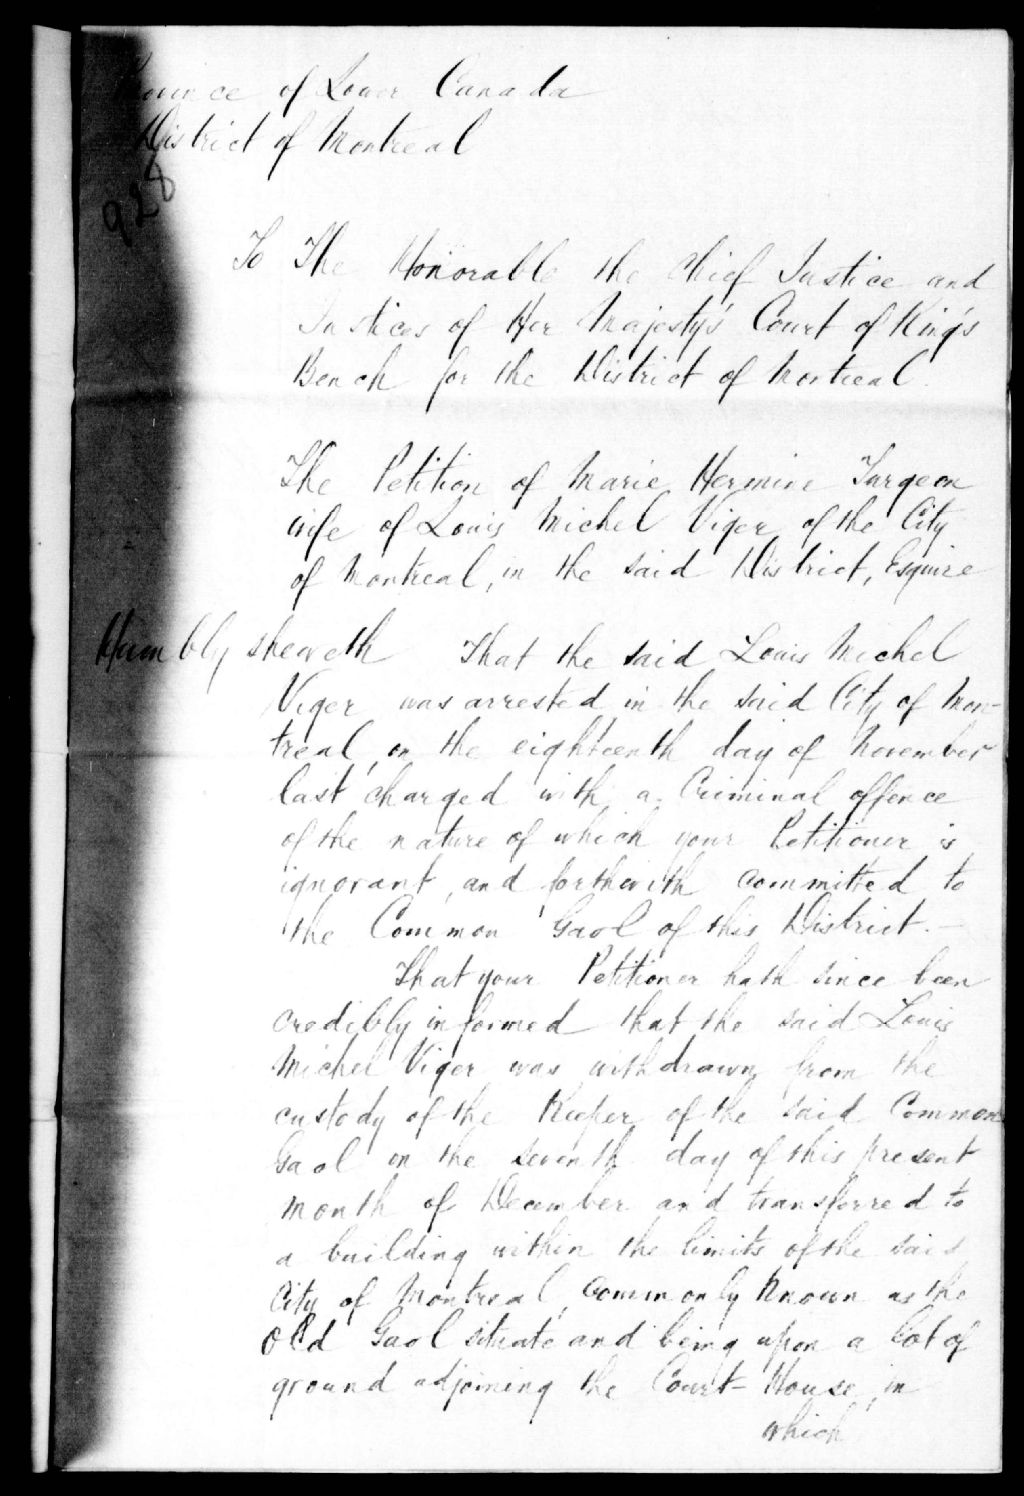 Province of Lower Canada
District of Montreal
928
To The Honorable the Chief Justice and
Justices of Her Majesty's Court of King's
Bench for the District of Montreal.
The Petition of Marie Hermine Turgeon
wife of Louis Michel Viger of the City
of Montreal, in the said District, Esquire
Humbly sheweth That the said Louis Michel
Viger was arrested in the said City of Mon-
treal, on the eighteenth day of November
last charged with a Criminal offence
of the nature of which your Petitioner is
ignorant, and forthwith committed to
the Common Gaol of this District. —
That your Petitioner hath since been
credibly informed that the said Louis
Michel Viger was withdrawn from the
custody of the Keeper of the said Common
Gaol on the seventh day of this present
month of December and transferred to
a building within the limits of the said
City of Montreal, commonly known as the
Old Gaol situate and being upon a lot of
ground adjoining the Court-House, in
which